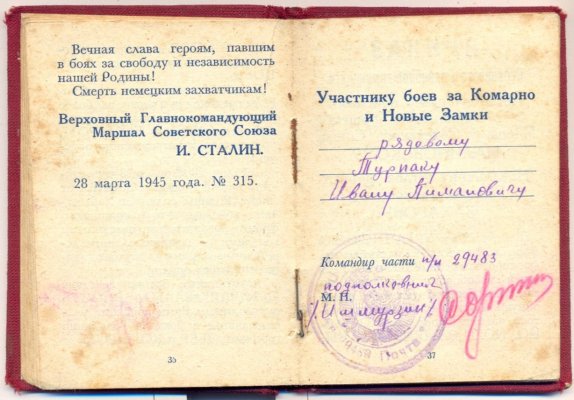 Вечная слава героям, павшим
в боях за свободу и независимость
нашей Родины!
Смерть немецким захватчикам!
Верховный Главнокомандующий
Маршал Советского Союза
И. СТАЛИН.
28 марта 1945 года. № 315.
35
Участнику боев за Комарно
и Новые Замки
рядовому
Турпаку
Ивану Пимановичу
Командир части п/п 29483
подполковник
М. П.
Почта
37